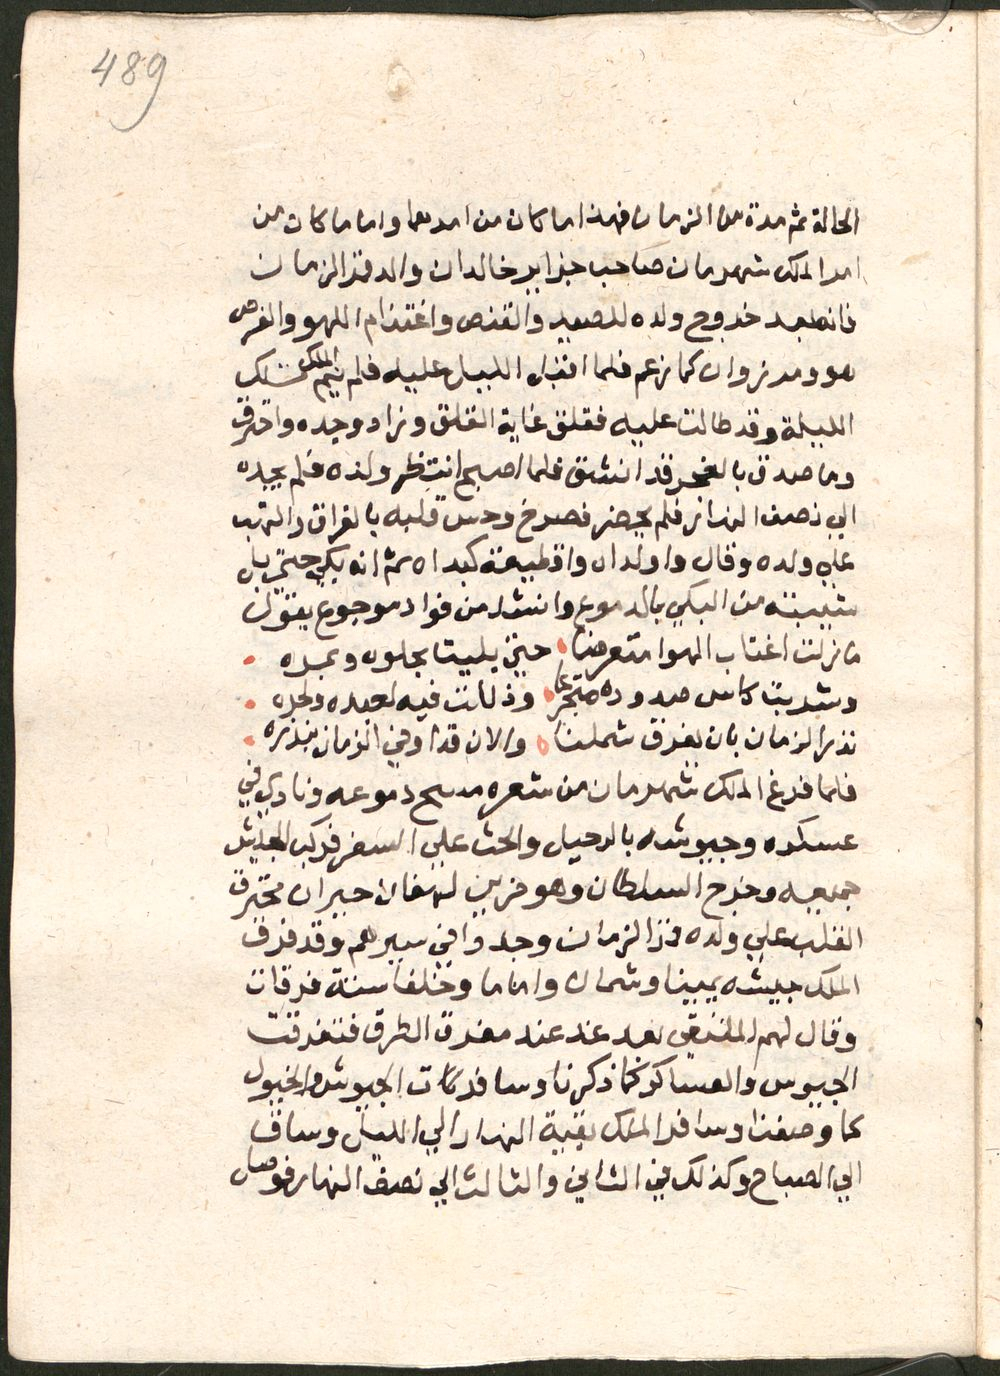 489
الحالة ثم مدة من الزمان فهذا ما كان من امرهما واما ما كان من
امر الملك شهرمان صاحب جزاير خالدان والد قمر الزمان
فانه بعد خروج ولده للصيد والقنص واغتنام اللهو والفرص
هو ومرزوان كما زعم فلما اقبل الليل عليه فلم ينم الملك تلك
الليلة وقد طالت عليه فقلق غاية القلق وزاد وجده واحترق
وما صدق بالفجر قد انشق فلما اصبح انتظر ولده فلم يجده
الي نصف النهار فلم يحضر فصرخ وحس قلبه بالفراق والتهب
علي ولده وقال واولداه واقطيعة كبداه ثم انه بكي حتي بل
شيبته من البكي بالدموع وانشد من فواد موجوع يقول
ما زلت اغتاب الهوا متعرضا حتي بليت بحلوه وبمره
وشربت كاس صدوده متجرعا وذللت فيه لعبده ولحره
نذر الزمان بان يفرق شملنا والان قد اوفي الزمان بنذره
فلما فرغ الملك شهرمان من شعره مسح دموعه ونادي في
عسكره وجيوشه بالرحيل والحث علي السفر فركب الجيش
جميعه وخرج السلطان وهو حزين لهفان حيران محترق
القلب علي ولده قمر الزمان وجدوا في سيرهم وقد فرق
الملك جيشه يمينا وشمال واماما وخلفا ستة فرقات
وقال لهم الملتقي بعد غد عند مفرق الطرق فتفرقت
الجيوس والعساكر كما ذكرنا وسافرت الجيوش والخيول
كما وصفنا وسافر الملك بقية النهار الي الليل وساق
الي الصباح وكذلك في الثاني والثالث الي نصف النهار فوصل